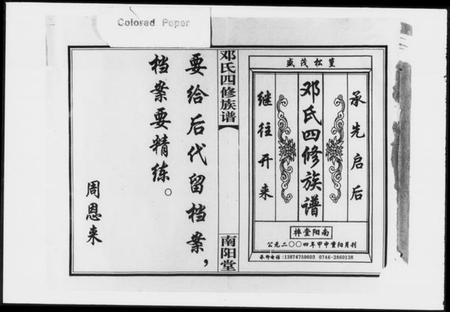 Colored Paper
盛茂松篁
承先启后
邓氏四修族谱
继往开来
南阳堂梓
公元二〇〇四年甲申重阳月刊
承印电话:13874750603 0746-2860138
邓氏四修族谱
南阳堂
要给后代留档案,
档案要精练。
周恩来